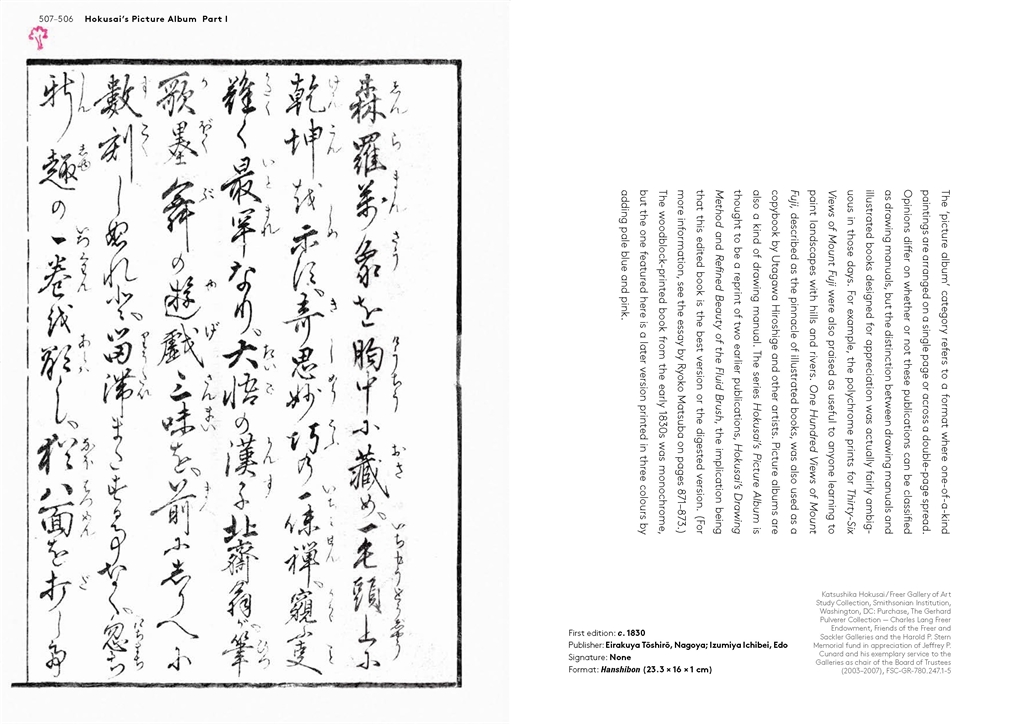 507–506 Hokusai's Picture Album Part I
森羅萬象を胸中に藏め一毛頭上に
乾坤を示す奇思妙巧の一味禅窺
難く最罕なり大悟の漢子北齋翁が筆
歌墨舞の遊戯三昧を前に
數刻し 留滞
新趣の一巻を 猶八面を打し
The 'picture album' category refers to a format where one-of-a-kind
paintings are arranged on a single page or across a double-page spread.
Opinions differ on whether or not these publications can be classified
as drawing manuals, but the distinction between drawing manuals and
illustrated books designed for appreciation was actually fairly ambig-
uous in those days. For example, the polychrome prints for Thirty-Six
Views of Mount Fuji were also praised as useful to anyone learning to
paint landscapes with hills and rivers. One Hundred Views of Mount
Fuji, described as the pinnacle of illustrated books, was also used as a
copybook by Utagawa Hiroshige and other artists. Picture albums are
also a kind of drawing manual. The series Hokusai's Picture Album is
thought to be a reprint of two earlier publications, Hokusai's Drawing
Method and Refined Beauty of the Fluid Brush, the implication being
that this edited book is the best version or the digested version. (For
more information, see the essay by Ryoko Matsuba on pages 871–873.)
The woodblock-printed book from the early 1830s was monochrome,
but the one featured here is a later version printed in three colours by
adding pale blue and pink.
First edition: c. 1830
Publisher: Eirakuya Tōshirō, Nagoya; Izumiya Ichibei, Edo
Signature: None
Format: Hanshibon (23.3 × 16 × 1 cm)
Katsushika Hokusai/Freer Gallery of Art
Study Collection, Smithsonian Institution,
Washington, DC: Purchase, The Gerhard
Pulverer Collection — Charles Lang Freer
Endowment, Friends of the Freer and
Sackler Galleries and the Harold P. Stern
Memorial fund in appreciation of Jeffrey P.
Cunard and his exemplary service to the
Galleries as chair of the Board of Trustees
(2003–2007), FSC-GR-780.247.1-5